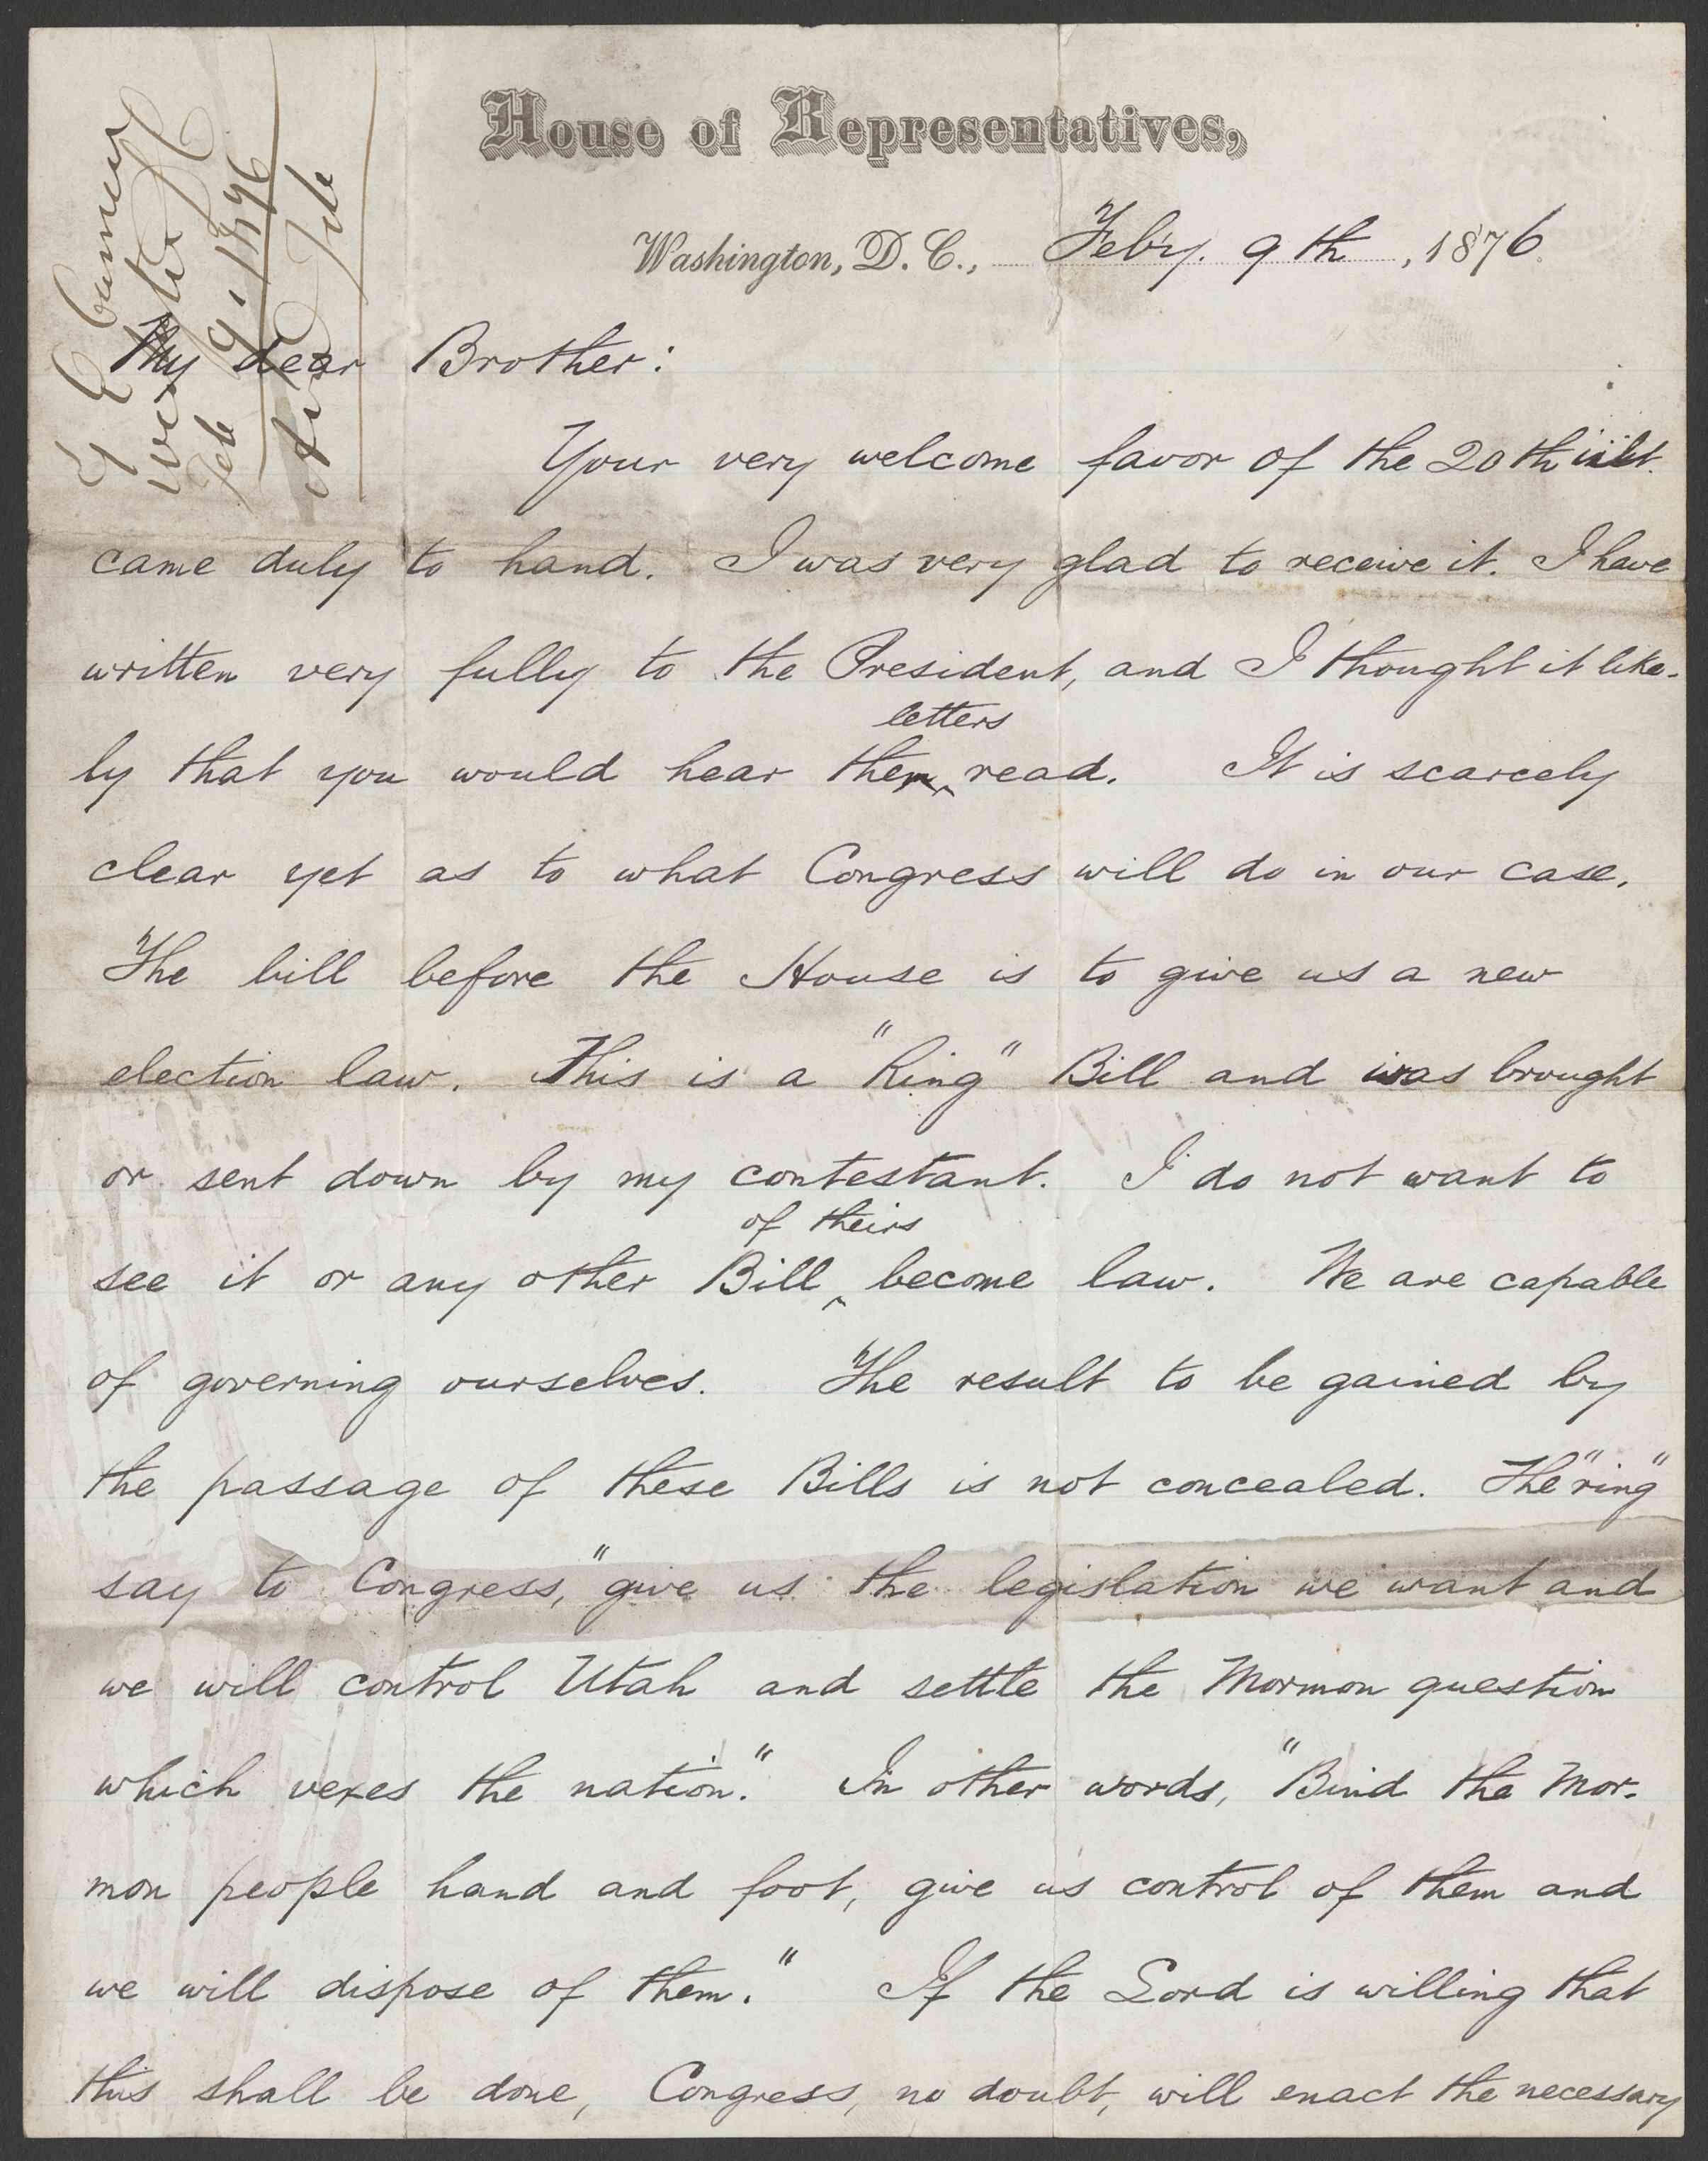 House of Representatives,
Washington, D. C., Feb'y. 9th, 1876.
My dear Brother:
Your very welcome favor of the 20th ult.
came duly to hand. I was very glad to receive it. I have
written very fully to the President, and I thought it like-
letters
ly that you would hear the read. It is scarcely
clear yet as to what Congress will do in our case.
The bill before the House is to give us a new
election law. This is a "Ring" Bill and was brought
or sent down by my contestant. I do not want to
of theirs
see it or any other Bill ‸ become law. We are capable
of governing ourselves. The result to be gained by
the passage of these Bills is not concealed. The "ring"
say to Congress, "give us the legislation we want and
we will control Utah and settle the Mormon question
which vexes the nation." In other words, "Bind the Mor-
mon people hand and foot, give us control of them and
we will dispose of them." If the Lord is willing that
this shall be done, Congress, no doubt, will enact the necessary
Feb 9. 1876
Feb